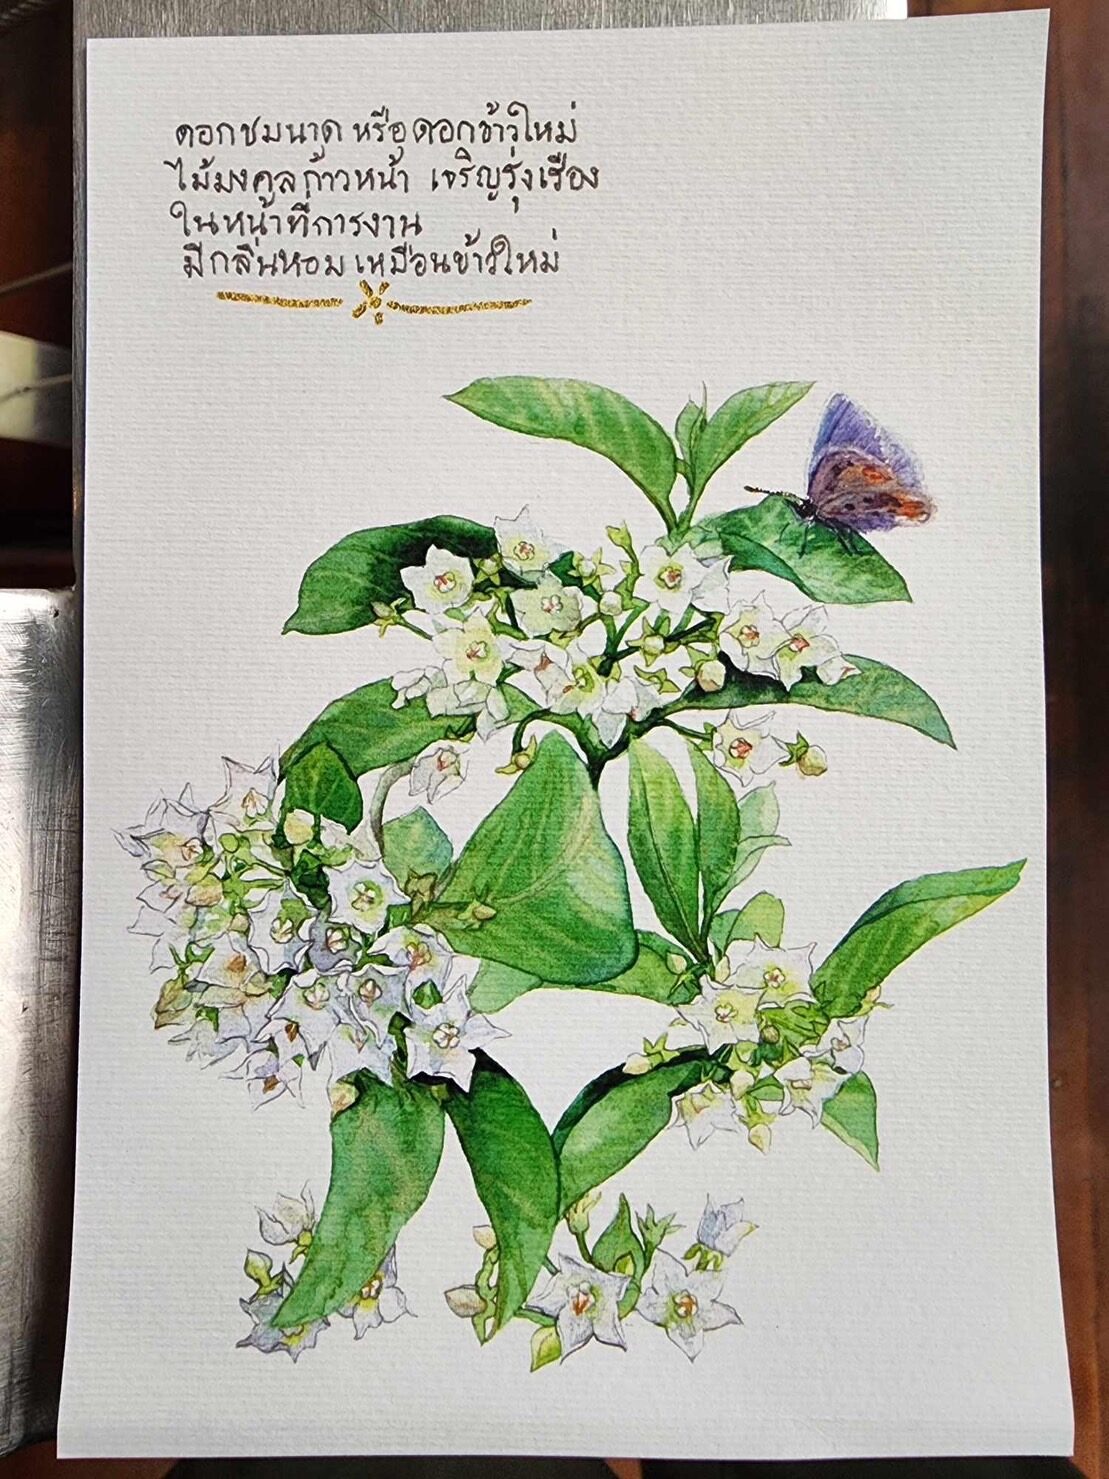 ดอกชมนาด หรือดอกข้าวใหม่
ไม้มงคลก้าวหน้า เจริญรุ่งเรือง
ในหน้าที่การงาน
มีกลิ่นหอม เหมือนข้าวใหม่